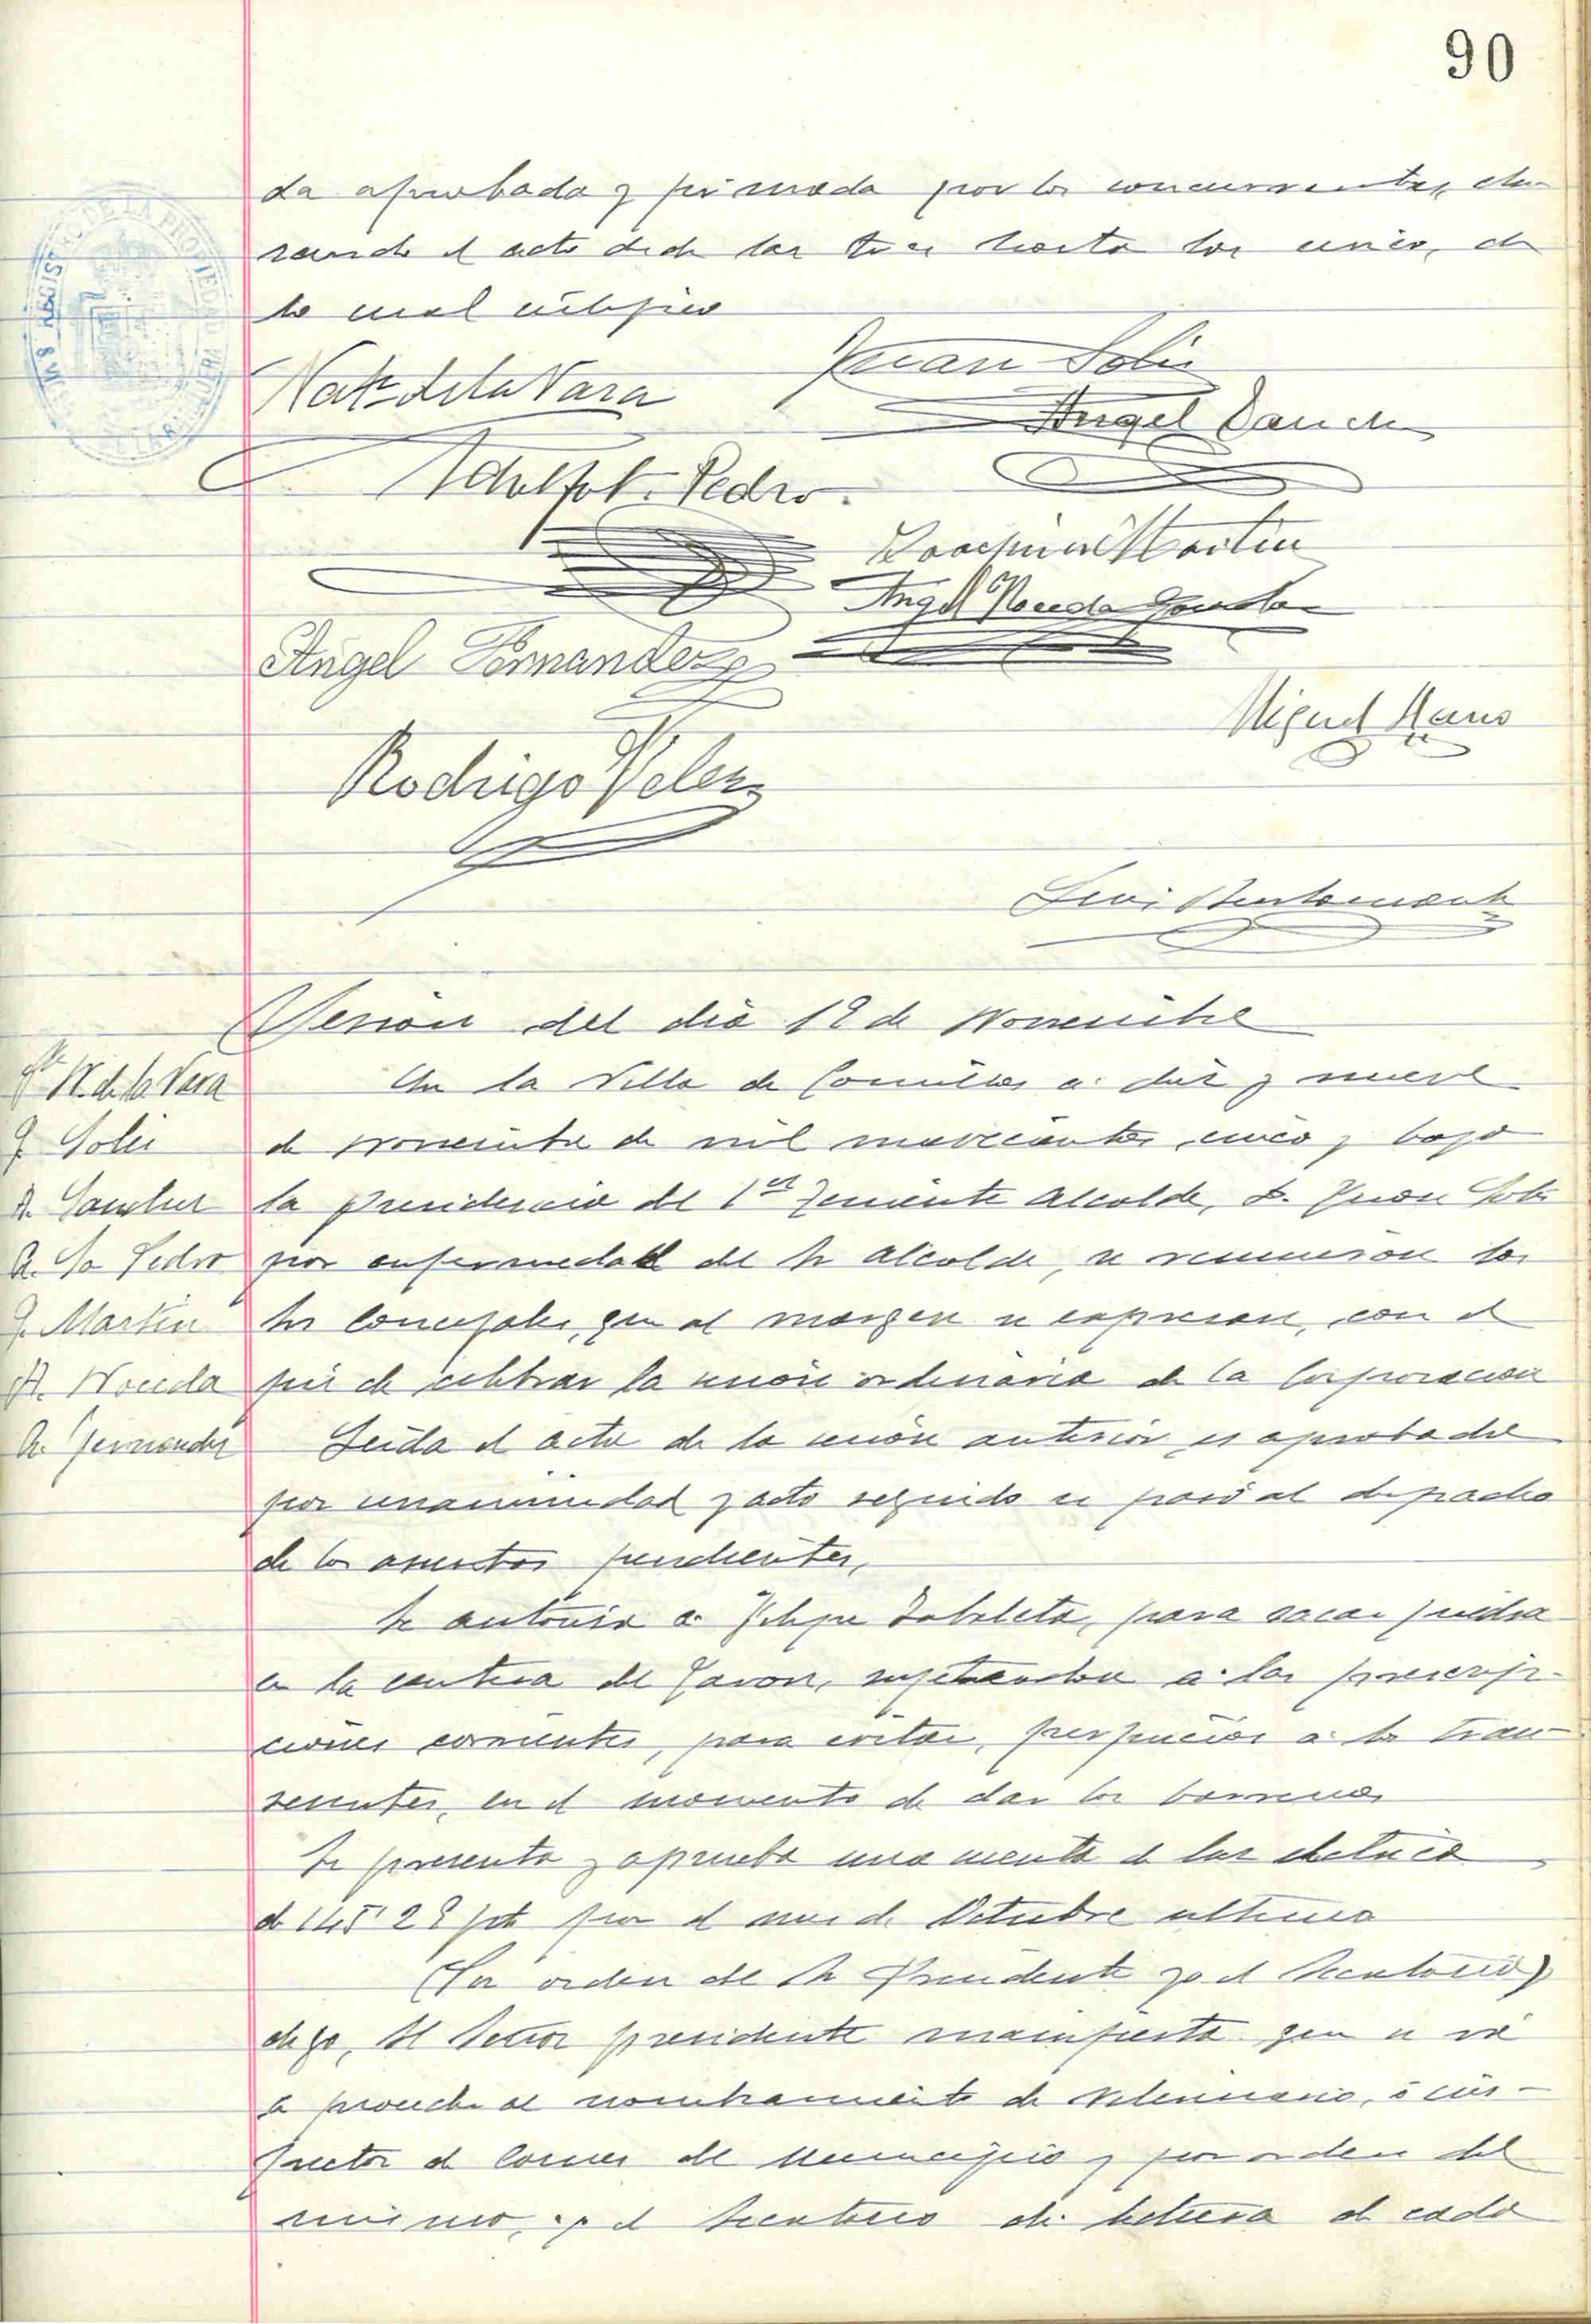 90
da aprobada y firmada por los concurrentes du-
rando el acto desde las tres hasta las cinco, de
lo cual certifico
Nat. de la Vara
Juan Solis
Angel Sanch
Adolfo S. Pedro
Joaquin Martin
Angel Noceda Gonzalez
Angel Fernandez
Miguel
Rodrigo Velez
Sesion del dia 19 de Noviembre
En la Villa de Comillas a diez y nueve
N. de la Vara
de Noviembre de mil novecientos cinco y bajo
J. Solis
la Presidencia del 1er Teniente Alcalde, D. Juan Solis
A. Sanchez
por enfermedad del Sr Alcalde, se reunieron los
A. Sn Pedro
Srs Concejales, que al margen se expresan, con el
J. Martin
fin de celebrar la sesión ordinaria de la Corporacion
A. Noceda
Leida el acta de la sesión anterior es aprobada
A. Fernandez
por unanimidad y acto seguido se pasó al despacho
de los asuntos pendientes,
Se autoriza a Felipe Zabaleta, para sacar piedra
en la cantera del Favon, sujetandose a las prescrip-
ciones corrientes, para evitar, perjuicios a los tran-
seuntes, en el momento de dar los barrenos
Se presenta y aprueba una cuenta de luz electrica
de 145'28 pts por el mes de Octubre ultimo
(Por orden del Sr Presidente yo el Secretario)
digo, El Señor presidente manifiesta que se vá
a proceder al nombramiento de Veterinario, ó ins-
pector de Carnes del Municipio y por orden del
mismo, yo el Secretario di lectura de cada